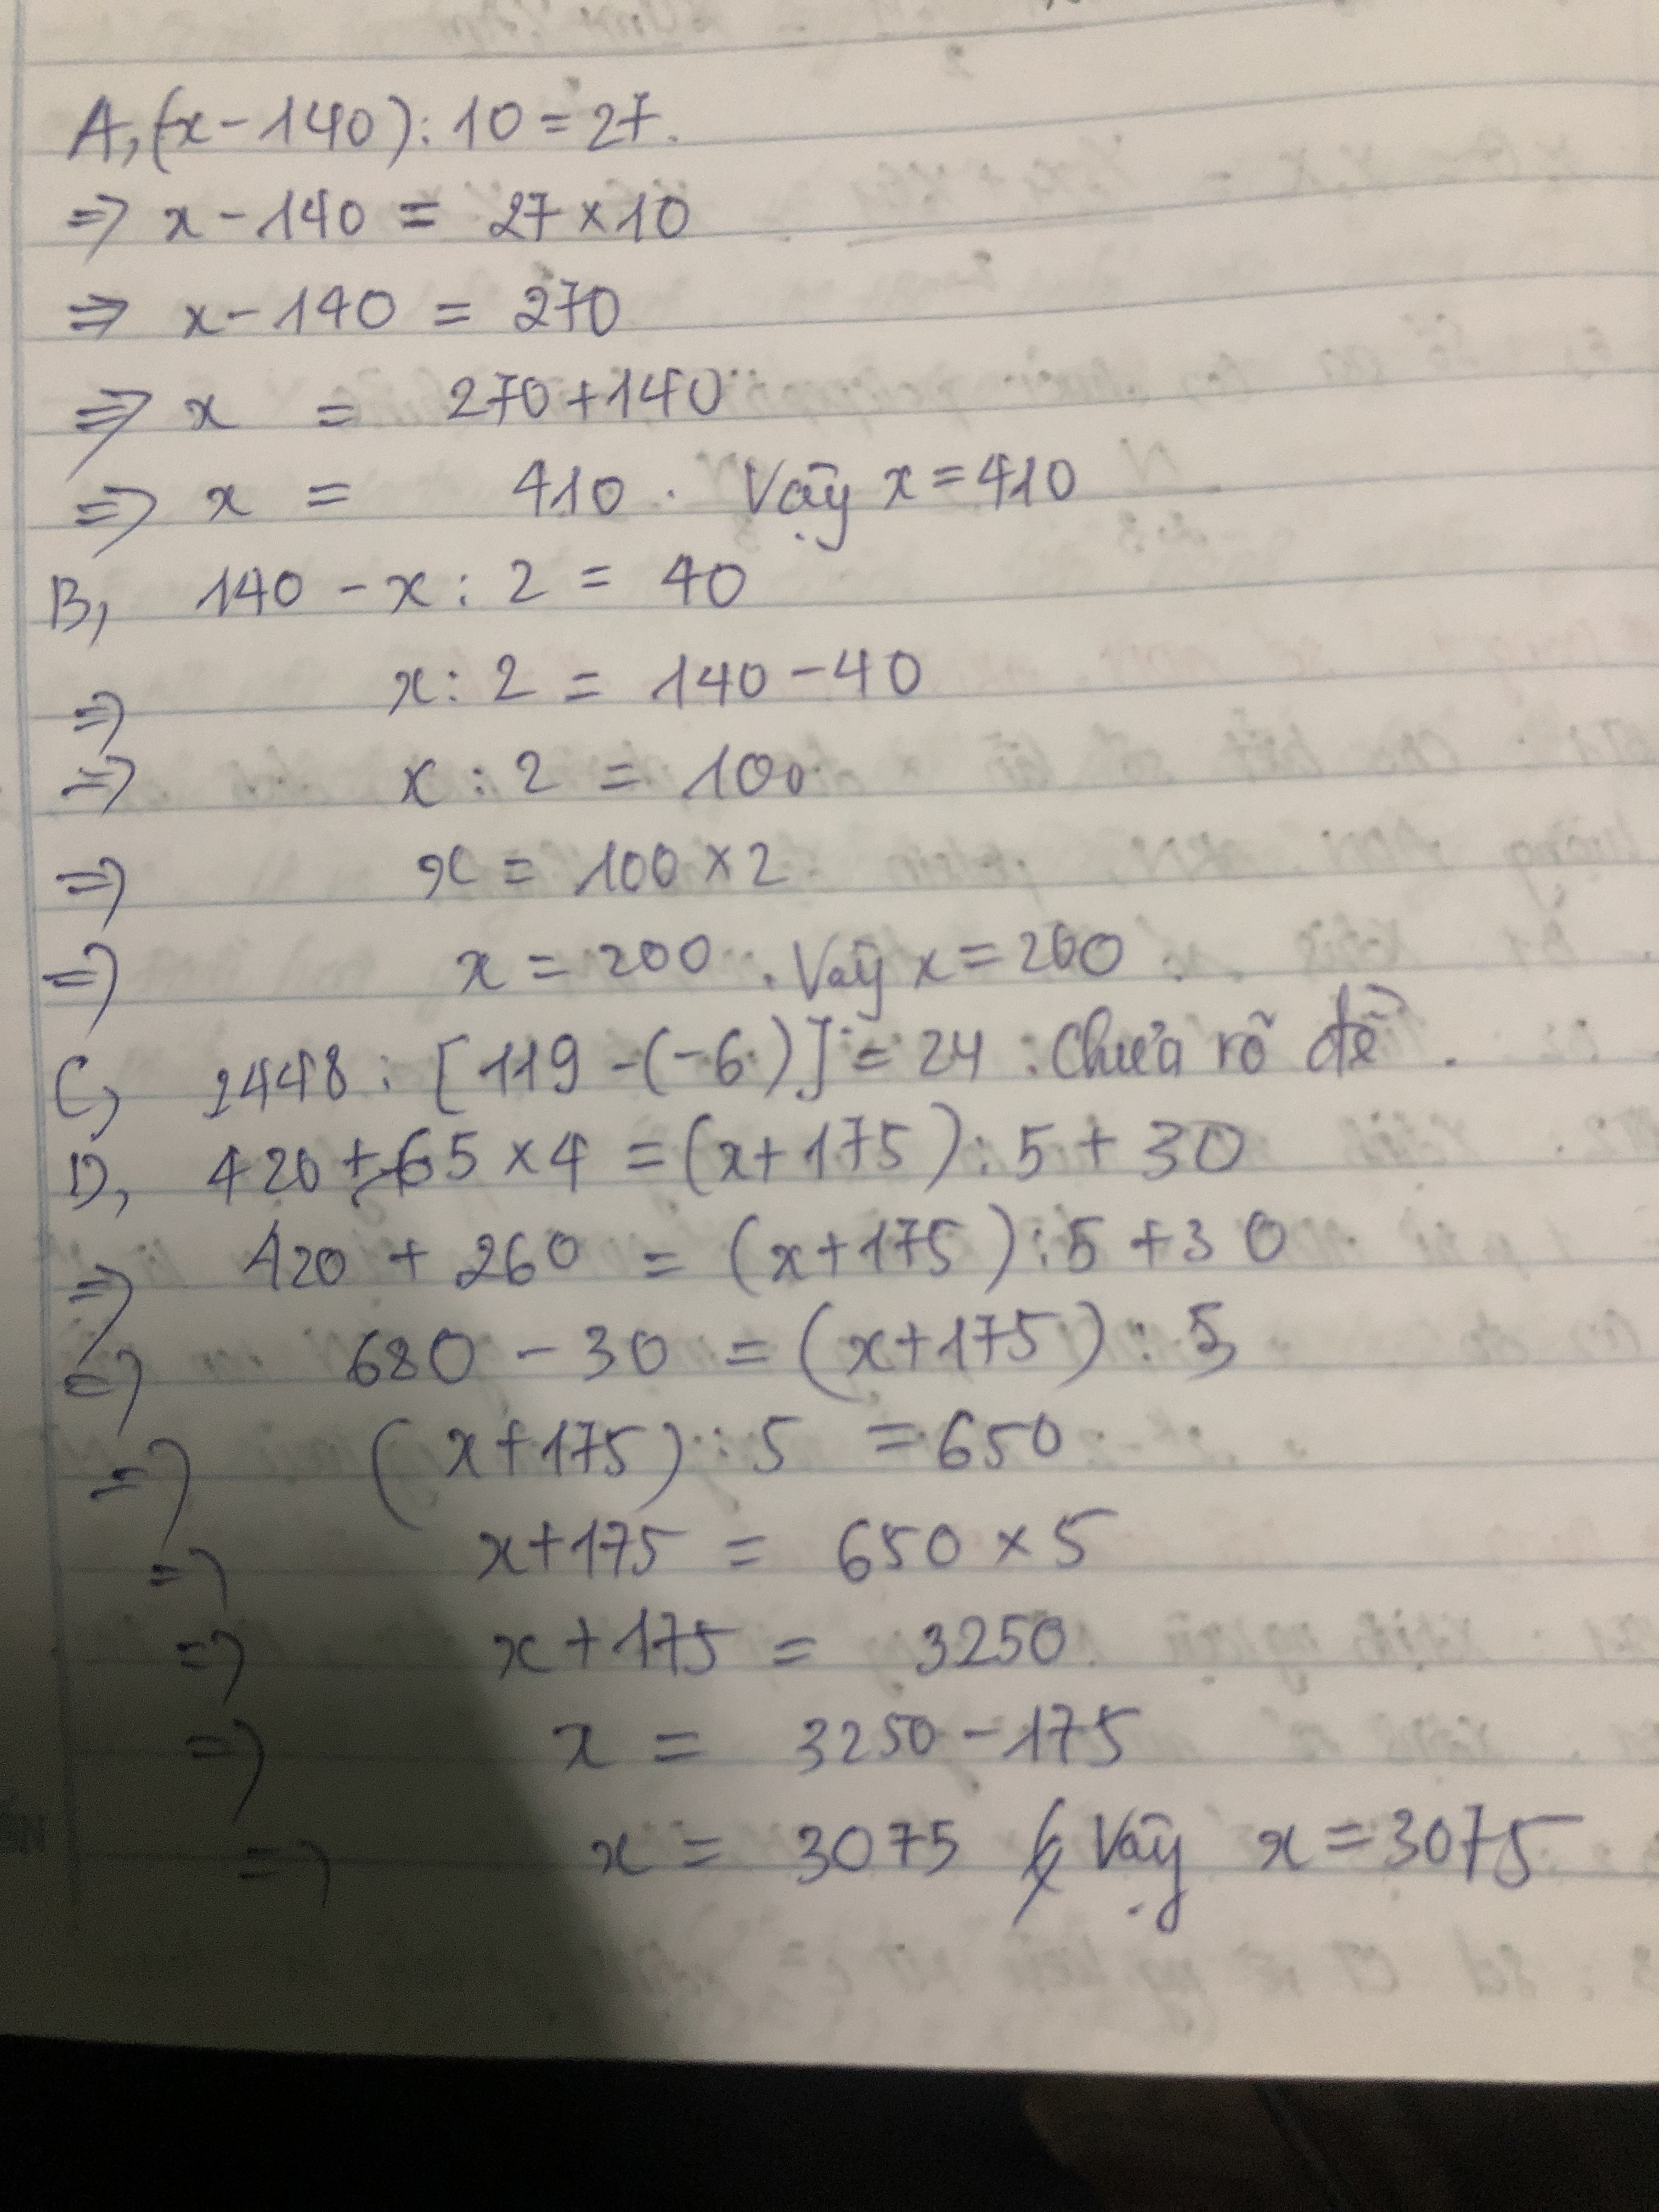 A, (x - 140) : 10 = 27.
=> x - 140 = 27 × 10
=> x - 140 = 270
=> x = 270 + 140
=> x = 410. Vậy x = 410
B, 140 - x : 2 = 40
=> x : 2 = 140 - 40
=> x : 2 = 100
=> x = 100 × 2
=> x = 200. Vậy x = 200
C, 2448 : [119 - (-6)] = 24 : Chưa rõ đề.
D, 420 + 65 × 4 = (x + 175) : 5 + 30
=> 420 + 260 = (x + 175) : 5 + 30
=> 680 - 30 = (x + 175) : 5
=> (x + 175) : 5 = 650
=> x + 175 = 650 × 5
=> x + 175 = 3250
=> x = 3250 - 175
=> x = 3075 Vậy x = 3075